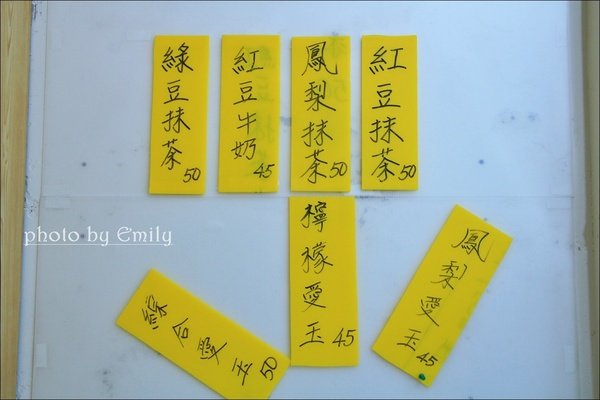 綠豆抹茶50
紅豆牛奶45
鳳梨抹茶50
紅豆抹茶50
photo by Emily
檸檬愛玉45
鳳梨愛玉45
綜合愛玉50